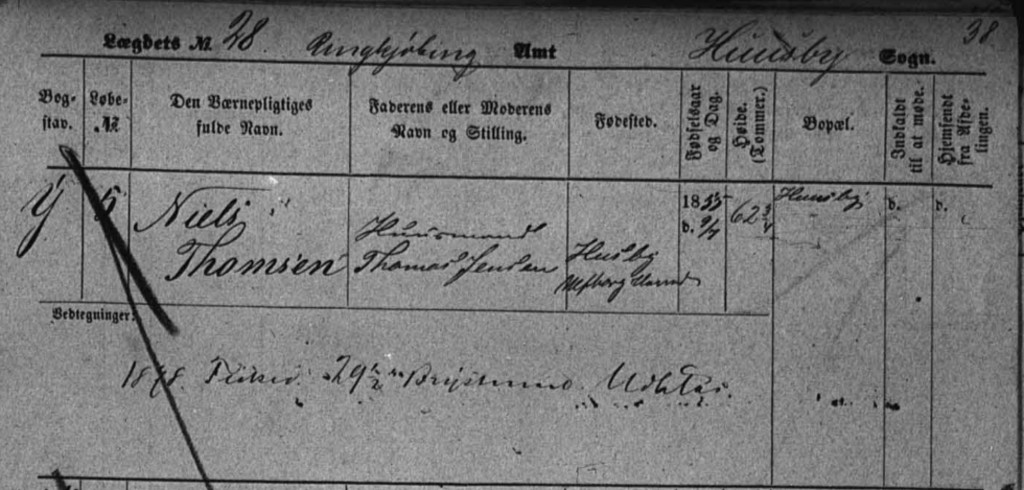 38
Lægdets № 28. Ringkjøbing Amt Huusby Sogn.
Bog-
stav.
Løbe-
№
Den Værnepligtiges
fulde Navn.
Faderens eller Moderens
Navn og Stilling.
Fødested.
Fødselsaar
og Dag.
Høide.
(Tommer.)
Bopæl.
Indkaldt
til at møde.
Hjemsendt
fra Afde-
lingen.
Y
5
Niels
Thomsen
Huusmand
Thomas Jensen
Husby
Ulfborg Herred
1855
d. 9/7
62 3/4
Huusby
d.
d.
Vedtegninger:
1878